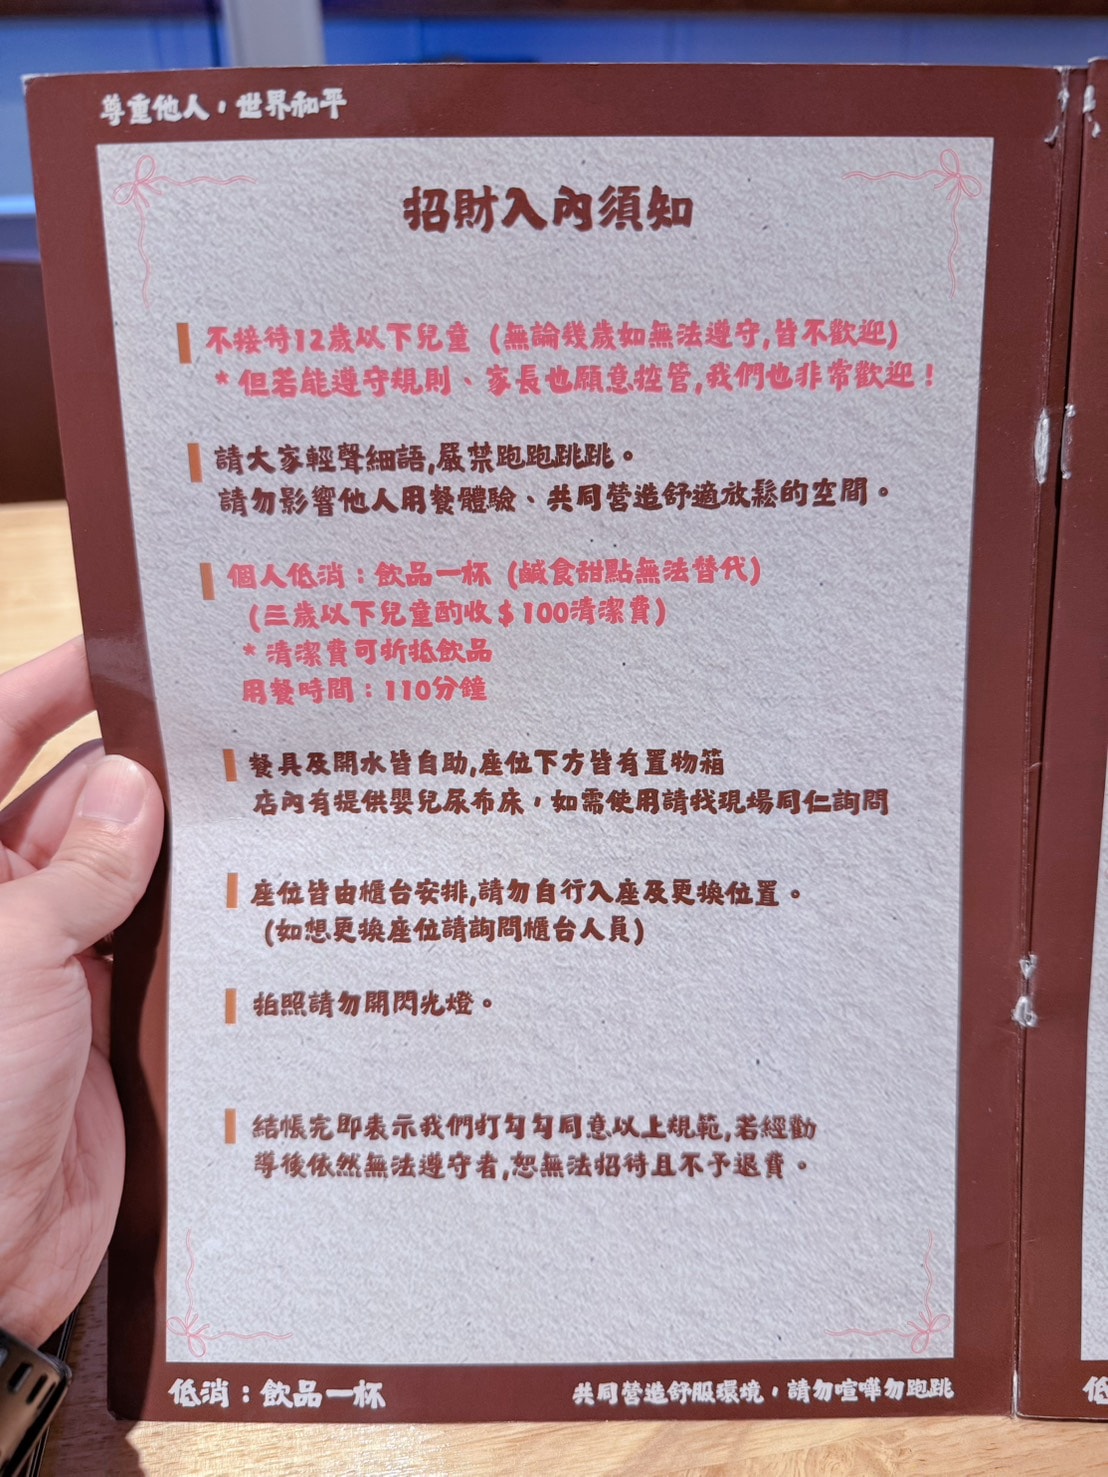 尊重他人，世界和平
招財入內須知
不接待12歲以下兒童 (無論幾歲如無法遵守,皆不歡迎)
*但若能遵守規則、家長也願意控管,我們也非常歡迎！
請大家輕聲細語,嚴禁跑跑跳跳。
請勿影響他人用餐體驗、共同營造舒適放鬆的空間。
個人低消：飲品一杯 (鹹食甜點無法替代)
(三歲以下兒童酌收$100清潔費)
*清潔費可折抵飲品
用餐時間：110分鐘
餐具及開水皆自助,座位下方皆有置物箱
店內有提供嬰兒尿布床，如需使用請找現場同仁詢問
座位皆由櫃台安排,請勿自行入座及更換位置。
(如想更換座位請詢問櫃台人員)
拍照請勿開閃光燈。
結帳完即表示我們打勾勾同意以上規範,若經勸
導後依然無法遵守者,恕無法招待且不予退費。
低消：飲品一杯
共同營造舒服環境，請勿喧嘩勿跑跳
低